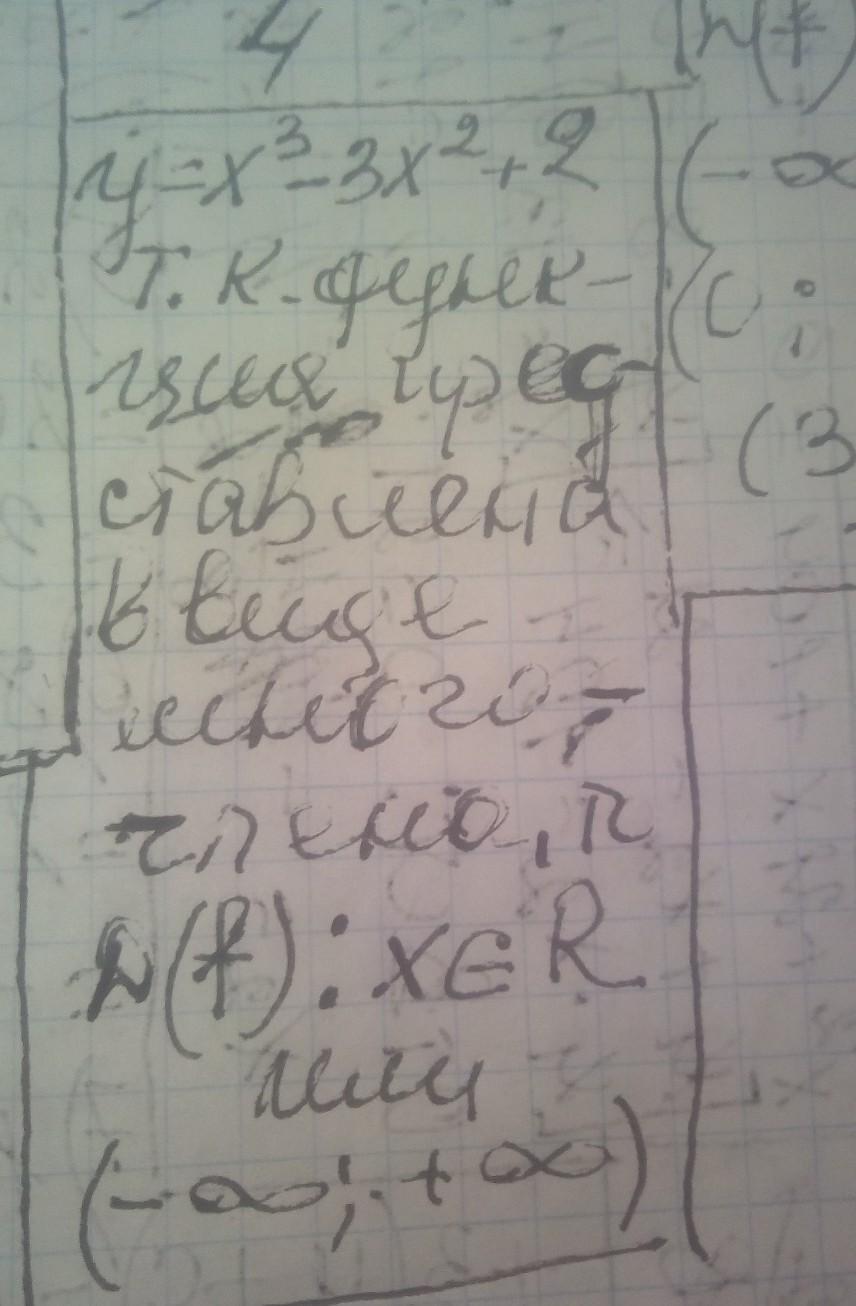 4
y=x³-3x²+2
т. к. функ-
ция пред-
ставлена
в виде
много-
члена, п
D(f): x∈R
или
(-∞; +∞)
D(f)
(-∞
0;
(3